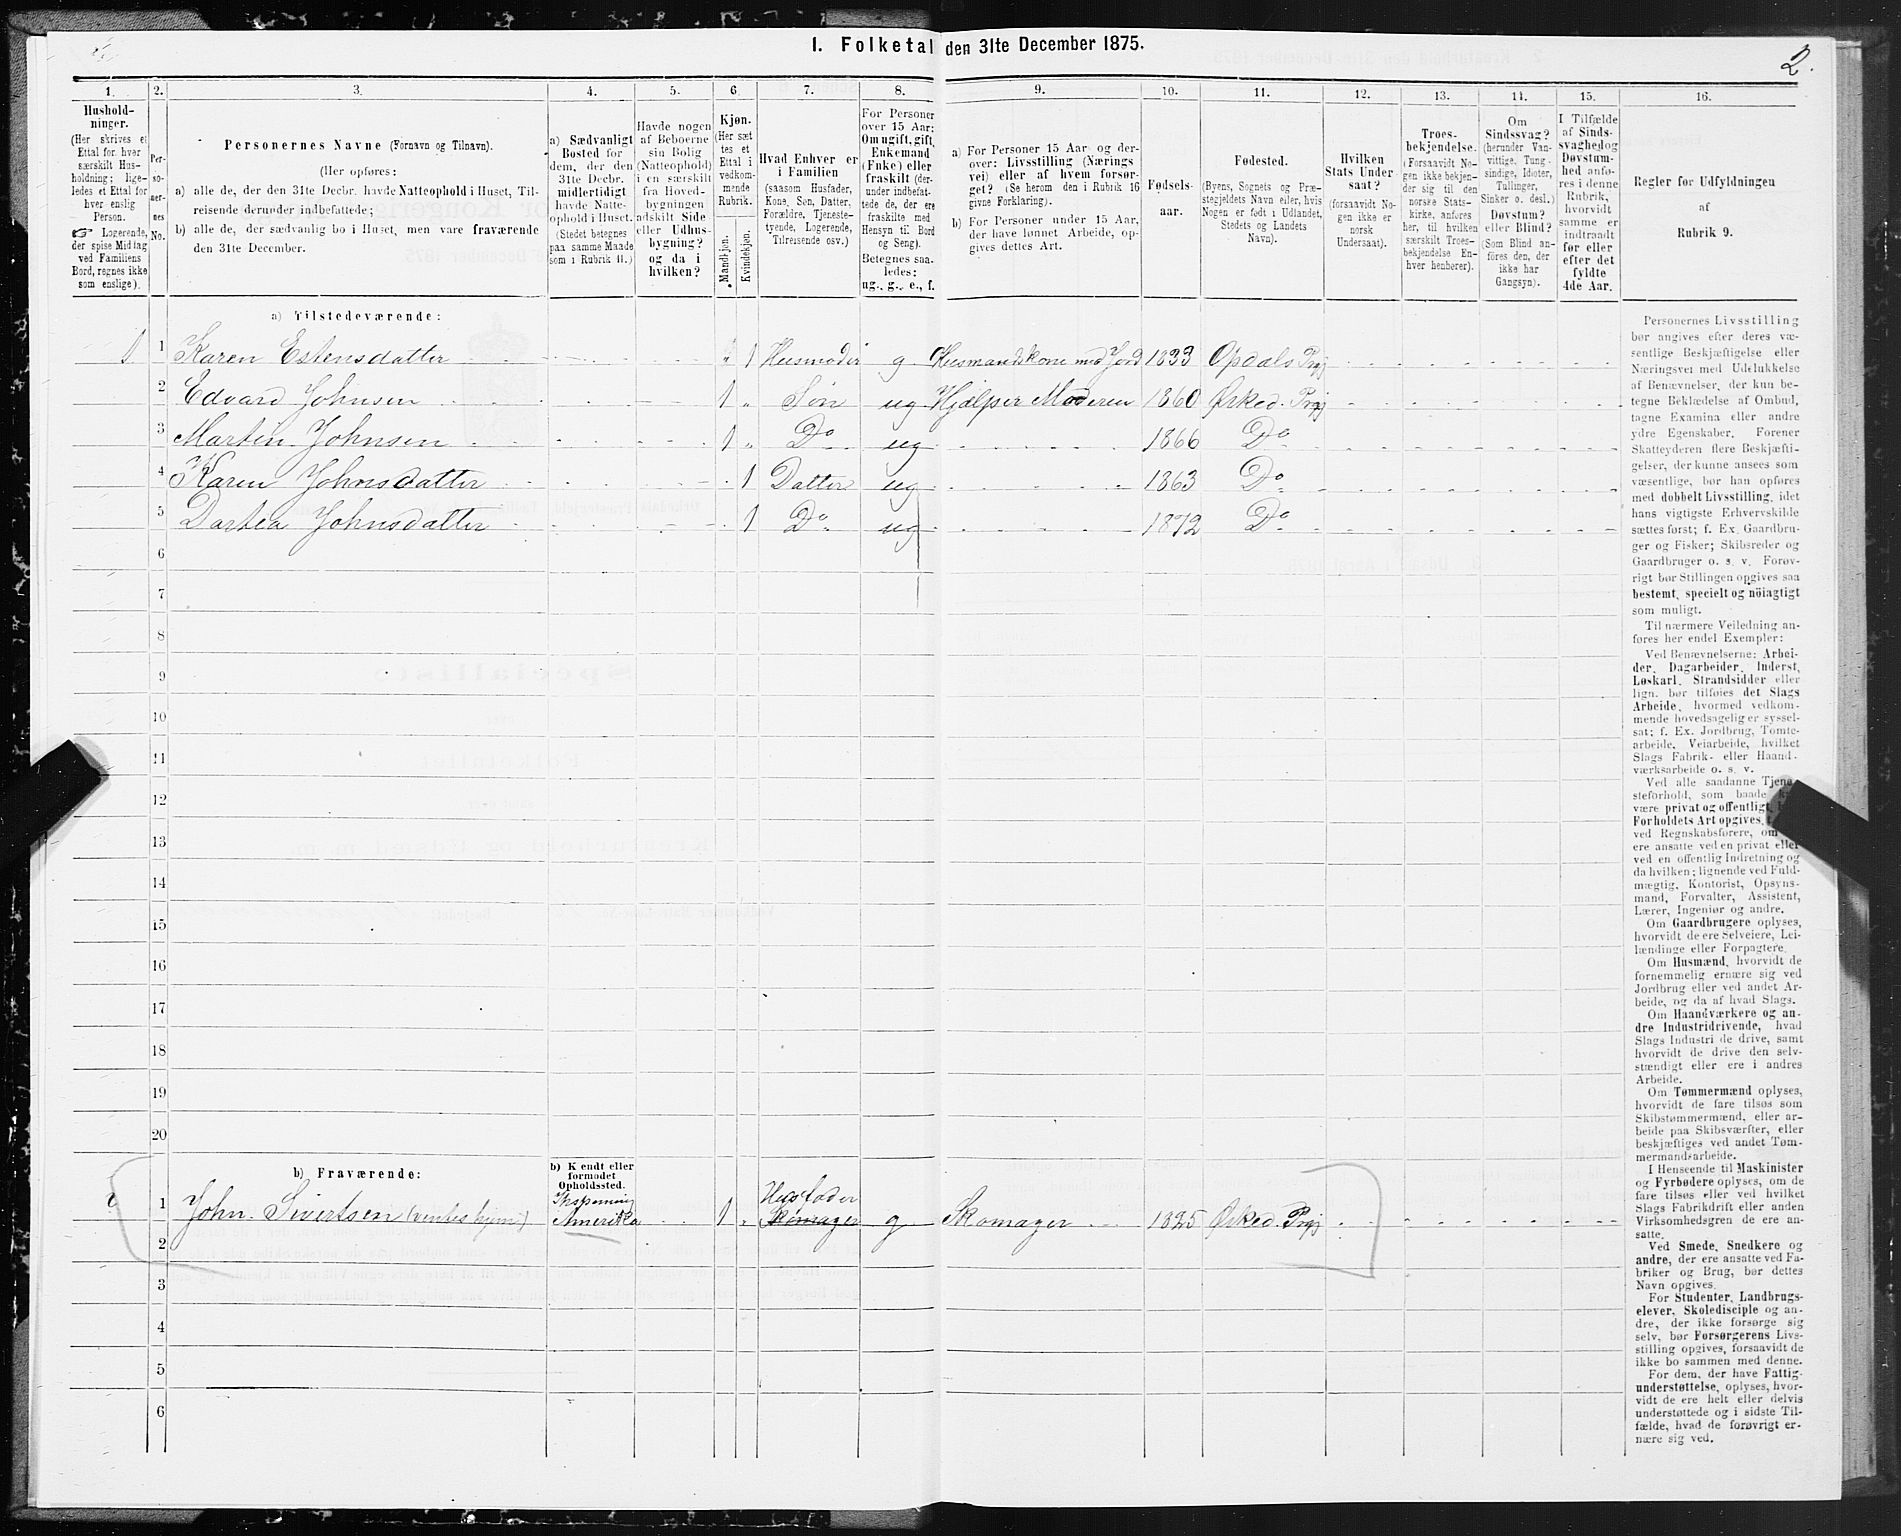 I. Folketal den 31te December 1875.
2.
1.
2.
3.
4.
5.
6.
7.
8.
9.
10.
11.
12.
13.
14.
15.
16.
Hushold-
ninger.
(Her skrives et
Ettal for hver
særskilt Hus-
holdning; lige-
ledes et Ettal for
hver enslig
Person.
☞ Logerende,
der spise Middag
ved Familiens
Bord, regnes ikke
som enslige).
Per-
so-
ner-
nes
No.
Personernes Navne (Fornavn og Tilnavn).
(Her opføres:
a) alle de, der den 31te Decbr. havde Natteophold i Huset, Til-
reisende derunder indbefattede;
b) alle de, der sædvanlig bo i Huset, men vare fraværende
den 31te December.
a) Sædvanligt
Bosted for
dem, der den
31te Decbr.
midlertidigt
havde Natte-
ophold i Huset.
(Stedet betegnes
paa samme Maade
som i Rubrik 11.)
Havde nogen
af Beboerne
sin Bolig
(Natteophold)
i en særskilt
fra Hoved-
bygningen
adskilt Side
eller Udhus-
bygning?
og da i
hvilken?
Kjøn.
(Her sæt-
tes et
Ettal i
vedkom-
mende
Rubrik.
Mandkjøn.
Kvindekjøn.
Hvad Enhver er
i Familien
(saasom Husfader,
Kone, Søn, Datter,
Forældre, Tjeneste-
tyende, Logerende,
Tilreisende osv.)
For Personer
over 15 Aar:
Om ugift, gift,
Enkemand
(Enke) eller
fraskilt (der-
under indbefat-
tede de, der ere
fraskilte med
Hensyn til Bord
og Seng).
Betegnes saa-
ledes:
ug., g., e., f.
a) For Personer 15 Aar og der-
over: Livsstilling (Nærings
vei) eller af hvem forsør-
get? (Se herom den i Rubrik 16
givne Forklaring).
b) For Personer under 15 Aar,
der have lønnet Arbeide, op-
gives dettes Art.
Fødsels-
aar.
Fødested.
(Byens, Sognets og Præ-
stegjeldets Navn eller, hvis
Nogen er født i Udlandet,
Stedets og Landets
Navn).
Hvilken
Stats Under
saat?
(forsaavidt No-
gen ikke er
norsk
Undersaat).
Troes-
bekjendelse.
(Forsaavidt No-
gen ikke bekjen-
der sig til den
norske Stats-
kirke, anføres
her, til hvilken
særskilt Troes-
bekjendelse En-
hver henhører).
Om
Sindssvag?
(herunder Van-
vittige, Tung-
sindige, Idioter,
Tullinger,
Sinker o. desl.)
Døvstum?
eller Blind?
(Som Blind an-
føres den, der
ikke har
Gangsyn).
I Tilfælde
af Sinds-
svaghed og
Døvstum-
hed anfø-
res i denne
Rubrik,
hvorvidt
samme er
indtraadt
før eller
efter det
fyldte
4de Aar.
Regler før Udfyldningen
af
Rubrik 9.
a) Tilstedeværende:
1 1 Karen Estensdatter „ 1 Husmoder g Husmandskone med Jord 1833 Opdals Prgj
2 Edvard Johnsen 1 „ Søn ug Hjælper Moderen 1860 Ørked. Prgj
3 Martin Johnsen 1 „ Do ug 1866 Do
4 Karen Johnsdatter 1 Datter ug 1863 Do
5 Dortea Johnsdatter 1 Do ug 1872 Do
6
7
8
9
10
11
12
13
14
15
16
17
18
19
20
b) Fraværende:
b) Kendt eller
formodet
Opholdssted.
Husfader
1 John Sivertsen (ventes hjem) Amerika 1 „ Skomager g Skomager 1825 Ørked. Prgj
2
3
4
5
6
Personernes Livsstilling
bør angives efter deres væ-
sentlige Beskjæftigelse eller
Næringsvei med Udelukkelse
af Benævnelser, der kun be-
tegne Beklædelse af Ombud,
tagne Examina eller andre
ydre Egenskaber. Forener
Skatteyderen flere Beskjæfti-
gelser, der kunne ansees som
væsentlige, bør han opføres
med dobbelt Livsstilling, idet
hans vigtigste Erhvervskilde
sættes først; f. Ex. Gaardbru-
ger og Fisker; Skibsreder og
Gaardbruger o. s. v. Forøv-
rigt bør Stillingen opgives saa
bestemt, specielt og nöiagtigt
som muligt.
Til nærmere Veiledning an-
føres her endel Exempler:
Ved Benævnelserne: Arbei-
der, Dagarbeider, Inderst,
Løskarl, Strandsidder eller
lign. bør tilføies det Slags
Arbeide, hvormed vedkom-
mende hovedsagelig er syssel-
sat; f. Ex. Jordbrug, Tomte-
arbeide, Veiarbeide, hvilket
Slags Fabrik- eller Haand-
værksarbeide o. s. v.
Ved alle saadanne Tjene-
steforhold, som baade
være privat og offentligt,
Forholdets Art opgives,
ved Regnskabsførere, om
ere ansatte ved en privat eller
ved en offentlig Indretning og
da hvilken; lignende ved Fuld-
mægtig, Kontorist, Opsyns-
mand, Forvalter, Assistent,
Lærer, Ingeniør og andre.
Om Gaardbrugere oplyses,
hvorvidt de ere Selveiere, Lei-
lændinge eller Forpagtere.
Om Husmænd, hvorvidt de
fornemmelig ernære sig ved
Jordbrug eller ved andet Ar-
beide, og da af hvad Slags.
Om Haandværkere og an-
dre Industridrivende, hvad
Slags Industri de drive, samt
hvorvidt de drive den selv-
stændigt eller ere i andres
Arbeide.
Om Tømmermænd oplyses,
hvorvidt de fare tilsøs som
Skibstømmermænd, eller ar-
beide paa Skibsværfter, eller
beskjæftiges ved andet Tøm-
mermandsarbeide.
I Henseende til Maskinister
og Fyrbødere oplyses, om de
fare tilsøs eller ved hvilket
Slags Fabrikdrift eller anden
Virksomhedsgren de ere an-
satte.
Ved Smede, Snedkere og
andre, der ere ansatte ved Fa-
briker og Brug, bør dettes
Navn opgives.
For Studenter, Landbrugs-
elever, Skoledisciple og an-
dre, der ikke forsørge sig
selv, bør Forsørgerens Livs-
stilling opgives, forsaavidt de
ikke bo sammen med denne.
For dem, der have Fattig-
understøttelse, oplyses, hvor-
vidt de ere helt eller delvis
understøttede og i sidste Til-
fælde, hvad de forøvrigt er-
nære sig ved.